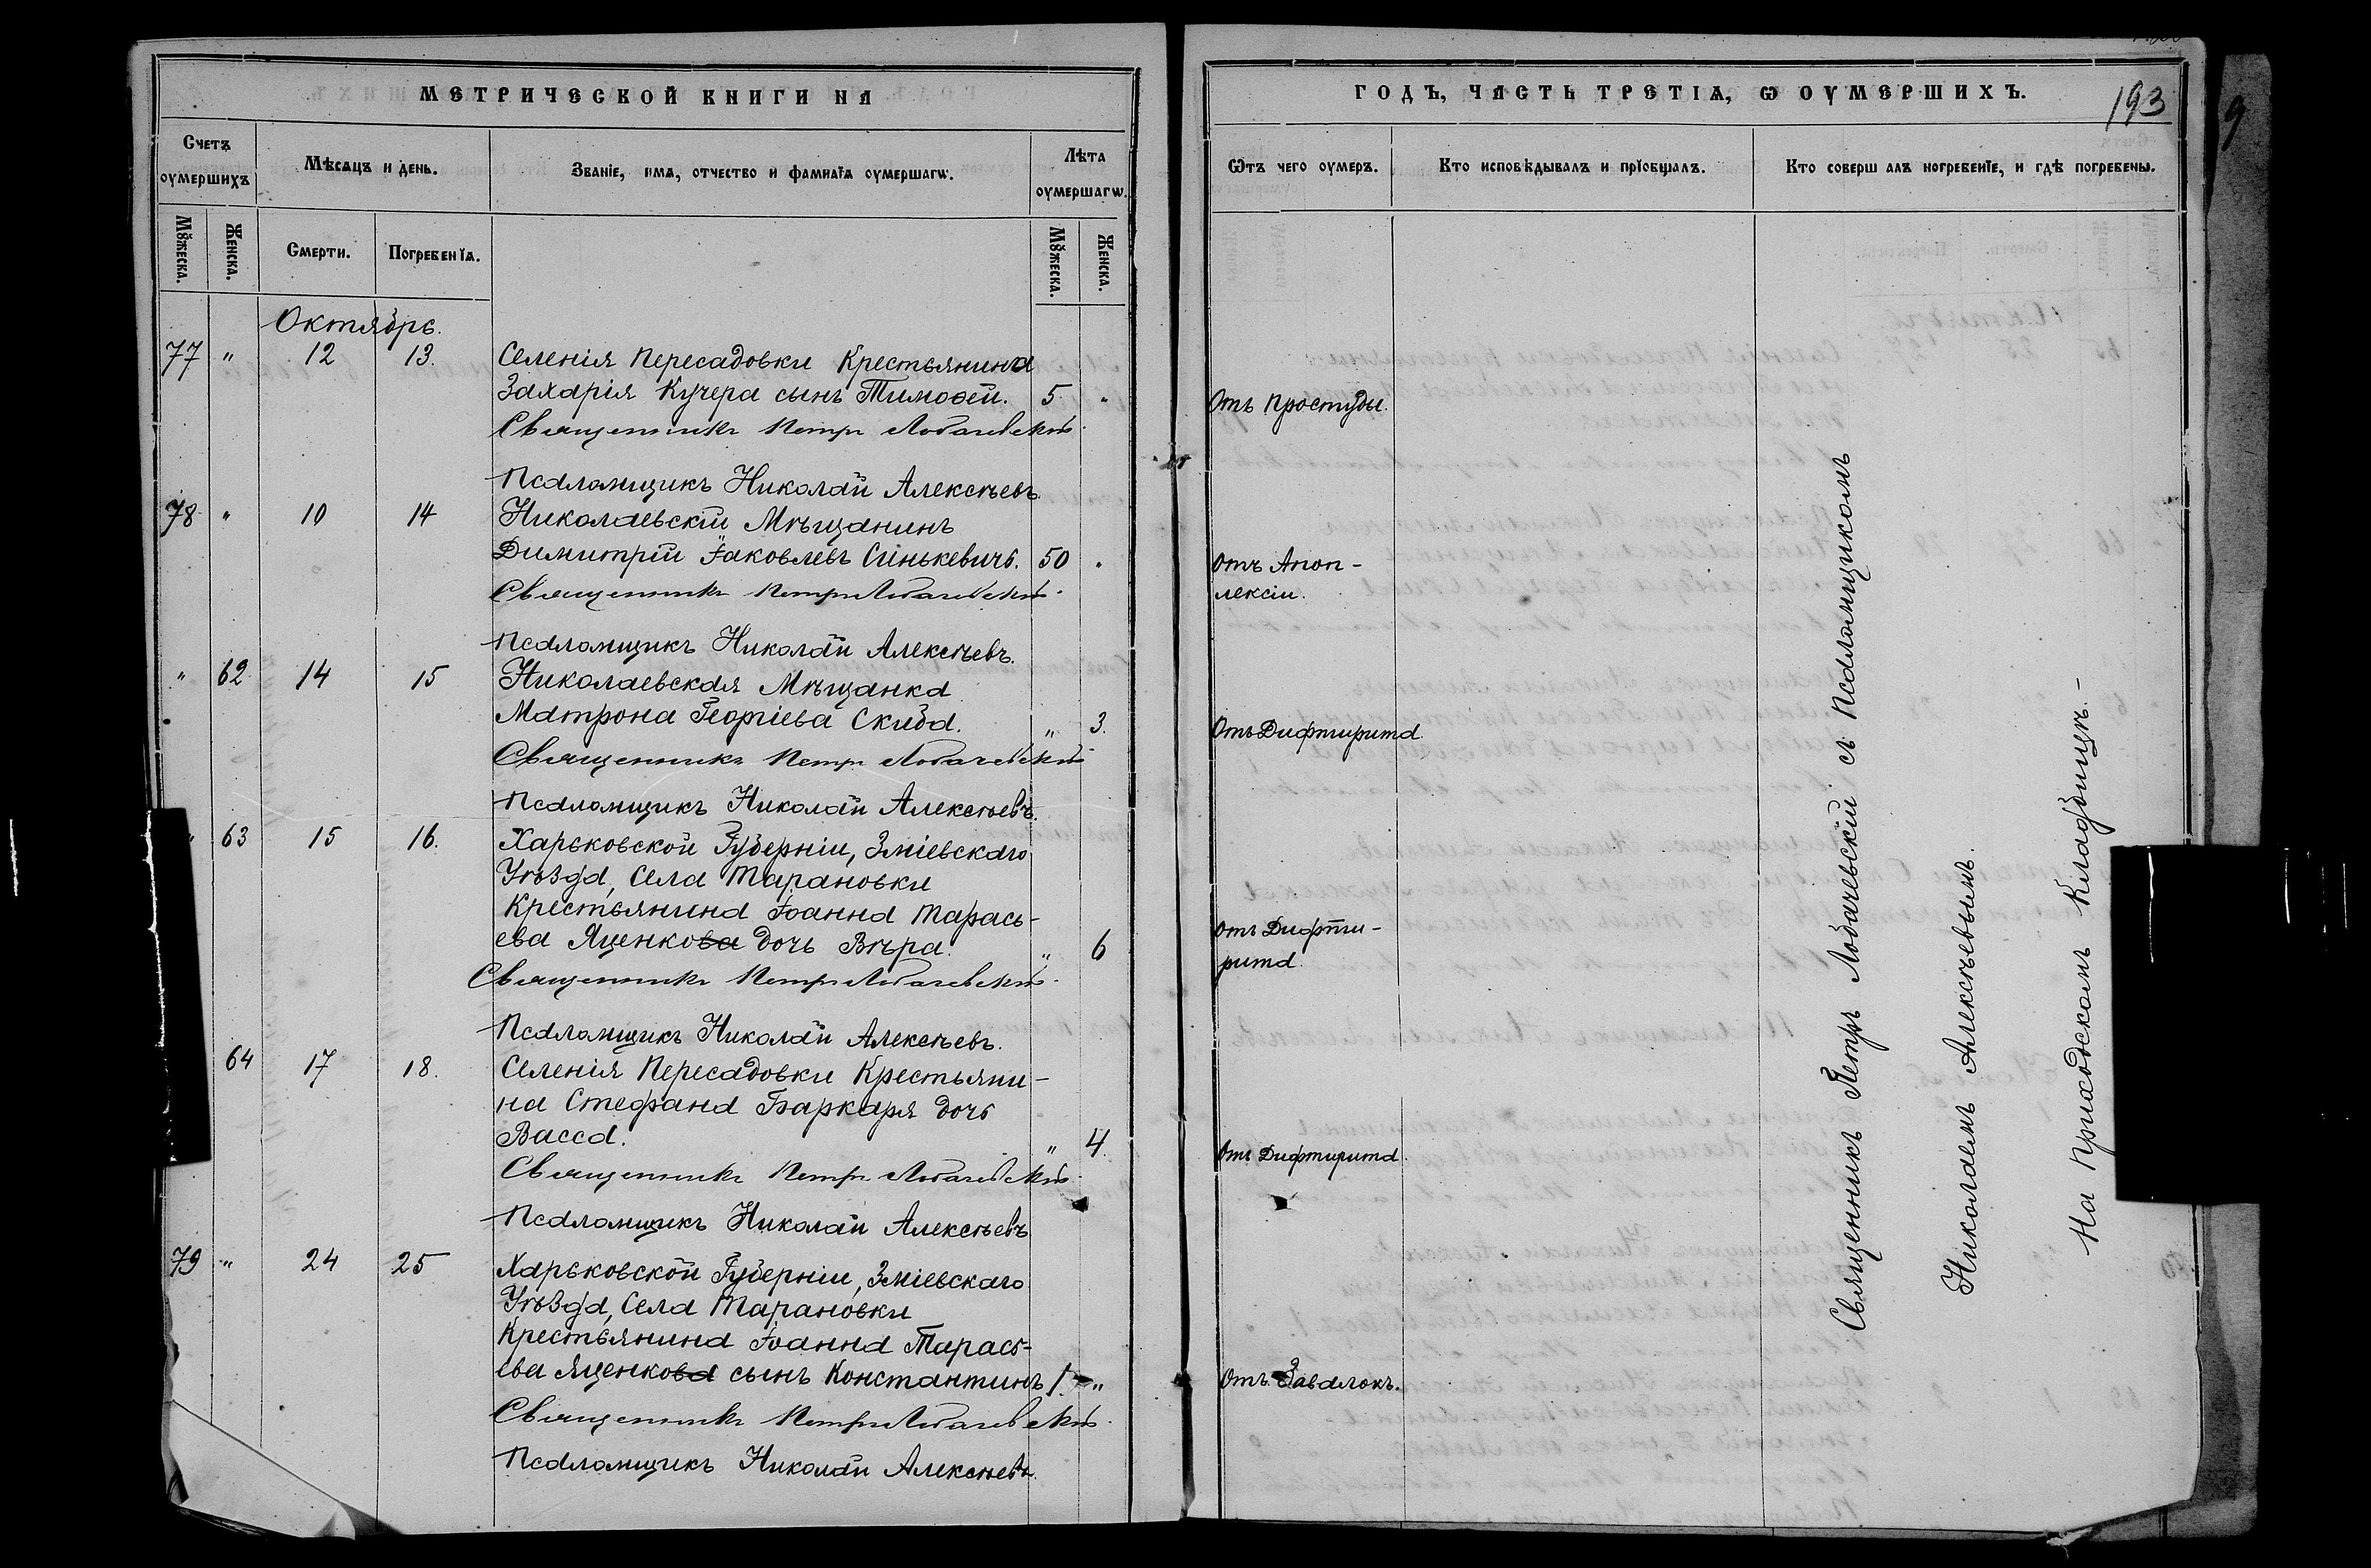 МЕТРИЧЕСКОЙ КНИГИ НА
Счетъ оумершихъ
Мѣсяцъ и день.
Званіе, имя, отчество и фамилїя оумершагѡ.
Лѣта оумершагѡ.
Мꙋжеска.
Женска.
Смерти.
Погребенїя.
Мꙋжеска.
Женска.
Октябрь.
77 " 12 13. Селенія Пересадовки Крестьянина
Захарія Кучера сынъ Тимоѳей. 5 "
Священникъ Петръ Лобачевскій
Псаломщикъ Николай Алексѣевъ.
78 " 10 14 Николаевскій Мѣщанинъ
Димитрій Іаковлевъ Синькевичъ. 50 "
Священникъ Петръ Лобачевскій
Псаломщикъ Николай Алексѣевъ.
" 62 14 15 Николаевская Мѣщанка
Матрона Георгіева Скиба. " 3.
Священникъ Петръ Лобачевскій
Псаломщикъ Николай Алексѣевъ.
" 63 15 16. Харьковской Губерніи, Зміевскаго
Уѣзда, Села Тарановки
Крестьянина Іоанна Тарась-
ева Яценкова дочь Вѣра. " 6
Священникъ Петръ Лобачевскій
Псаломщикъ Николай Алексѣевъ.
64 17 18. Селенія Пересадовки Крестьяни-
на Стефана Баркаря дочь
Васса. " 4.
Священникъ Петръ Лобачевскій
Псаломщикъ Николай Алексѣевъ
79 " 24 25 Харьковской Губерніи, Зміевскаго
Уѣзда, Села Тарановки
Крестьянина Іоанна Тарась-
ева Яценкова сынъ Константинъ 1. "
Священникъ Петръ Лобачевскій
Псаломщикъ Николай Алексѣевъ.
ГОДЪ, ЧАСТЬ ТРЕТІѦ, Ѡ ОУМЕРШИХЪ.
193
9
Ѿтъ чего оумеръ.
Кто исповѣдывалъ и прїобщалъ.
Кто соверш алъ погребенїе, и гдѣ погребены.
Отъ Простуды.
Отъ Апоп-
лексіи.
Отъ Дифтирита.
Отъ Дифти-
рита.
Отъ Дифтирита.
Отъ Завалокъ.
Священникъ Петръ Лобачевскій съ Псаломщикомъ
Николаемъ Алексѣевымъ.
На приходскомъ Кладбищѣ.-